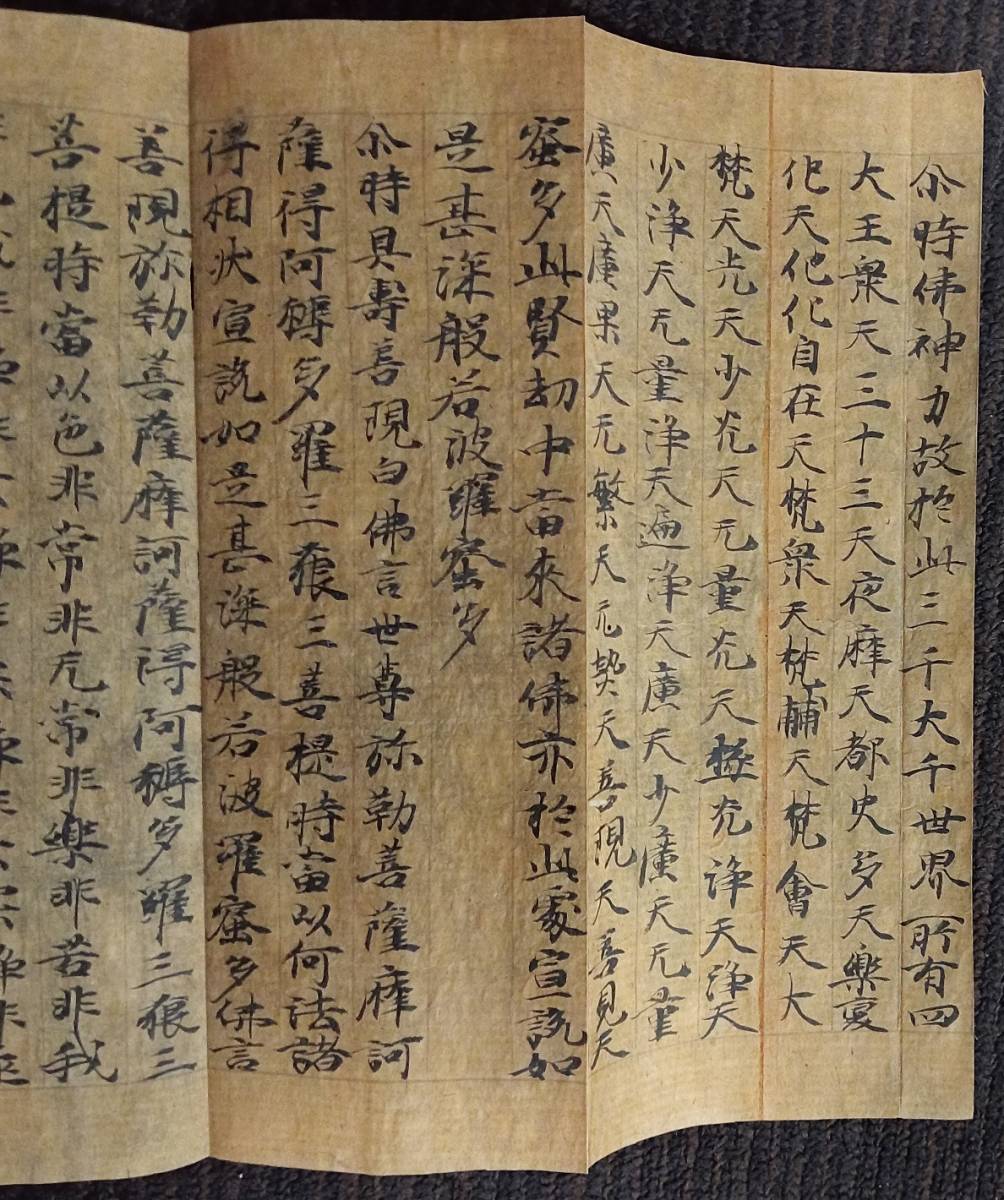 尒時佛神力故於此三千大千世界所有四
大王衆天三十三天夜摩天都史多天樂變
化天他化自在天梵衆天梵輔天梵會天大
梵天光天少光天无量光天極光淨天淨天
少淨天无量淨天遍淨天廣天少廣天无量
廣天廣果天无繁天无熱天善現天善見天
蜜多此賢劫中當來諸佛亦於此處宣說如
是甚深般若波羅蜜多
尒時具壽善現白佛言世尊弥勒菩薩摩訶
薩得阿耨多羅三藐三菩提時當以何法諸
得相狀宣說如是甚深般若波羅蜜多佛言
善現弥勒菩薩摩訶薩得阿耨多羅三藐三
菩提時當以色非常非无常非樂非苦非我